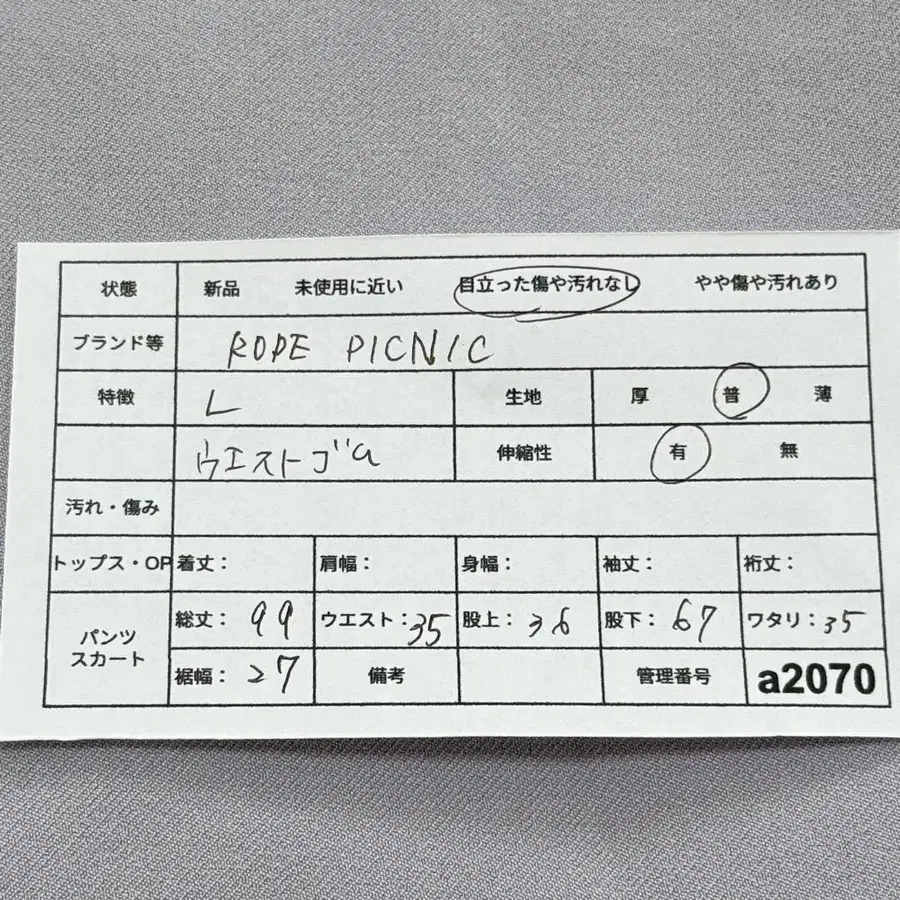 状態 新品 未使用に近い 目立った傷や汚れなし やや傷や汚れあり
ブランド等 ROPE PICNIC
特徴 L 生地 厚 普 薄
ウエストゴム 伸縮性 有 無
汚れ・傷み
トップス・OP 着丈： 肩幅： 身幅： 袖丈： 裄丈：
パンツ
スカート
総丈： 99 ウエスト：35 股上： 36 股下： 67 ワタリ：35
裾幅： 27 備考 管理番号 a2070